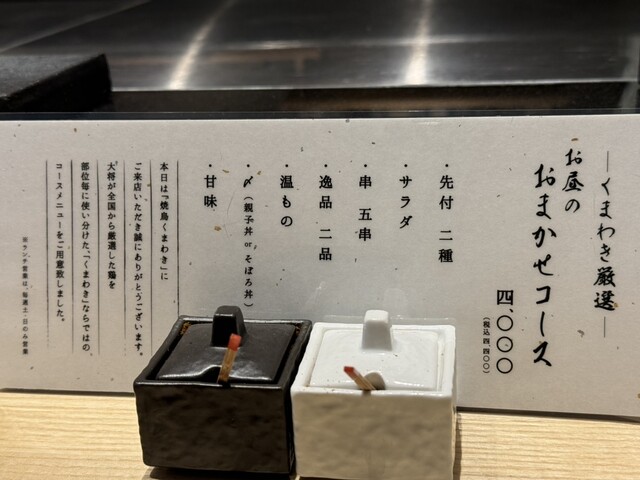 ―くまわき厳選―
お昼の
おまかせコース
四、〇〇〇
(税込四、四〇〇)
・先付 二種
・サラダ
・串 五串
・逸品 二品
・温もの
・〆(親子丼 or そぼろ丼)
・甘味
本日は『焼鳥くまわき』に
ご来店いただき誠にありがとうございます。
大将が全国から厳選した鶏を
部位毎に使い分けた、「くまわき」ならではの、
コースメニューをご用意致しました。
※ランチ営業は、毎週土・日のみ営業